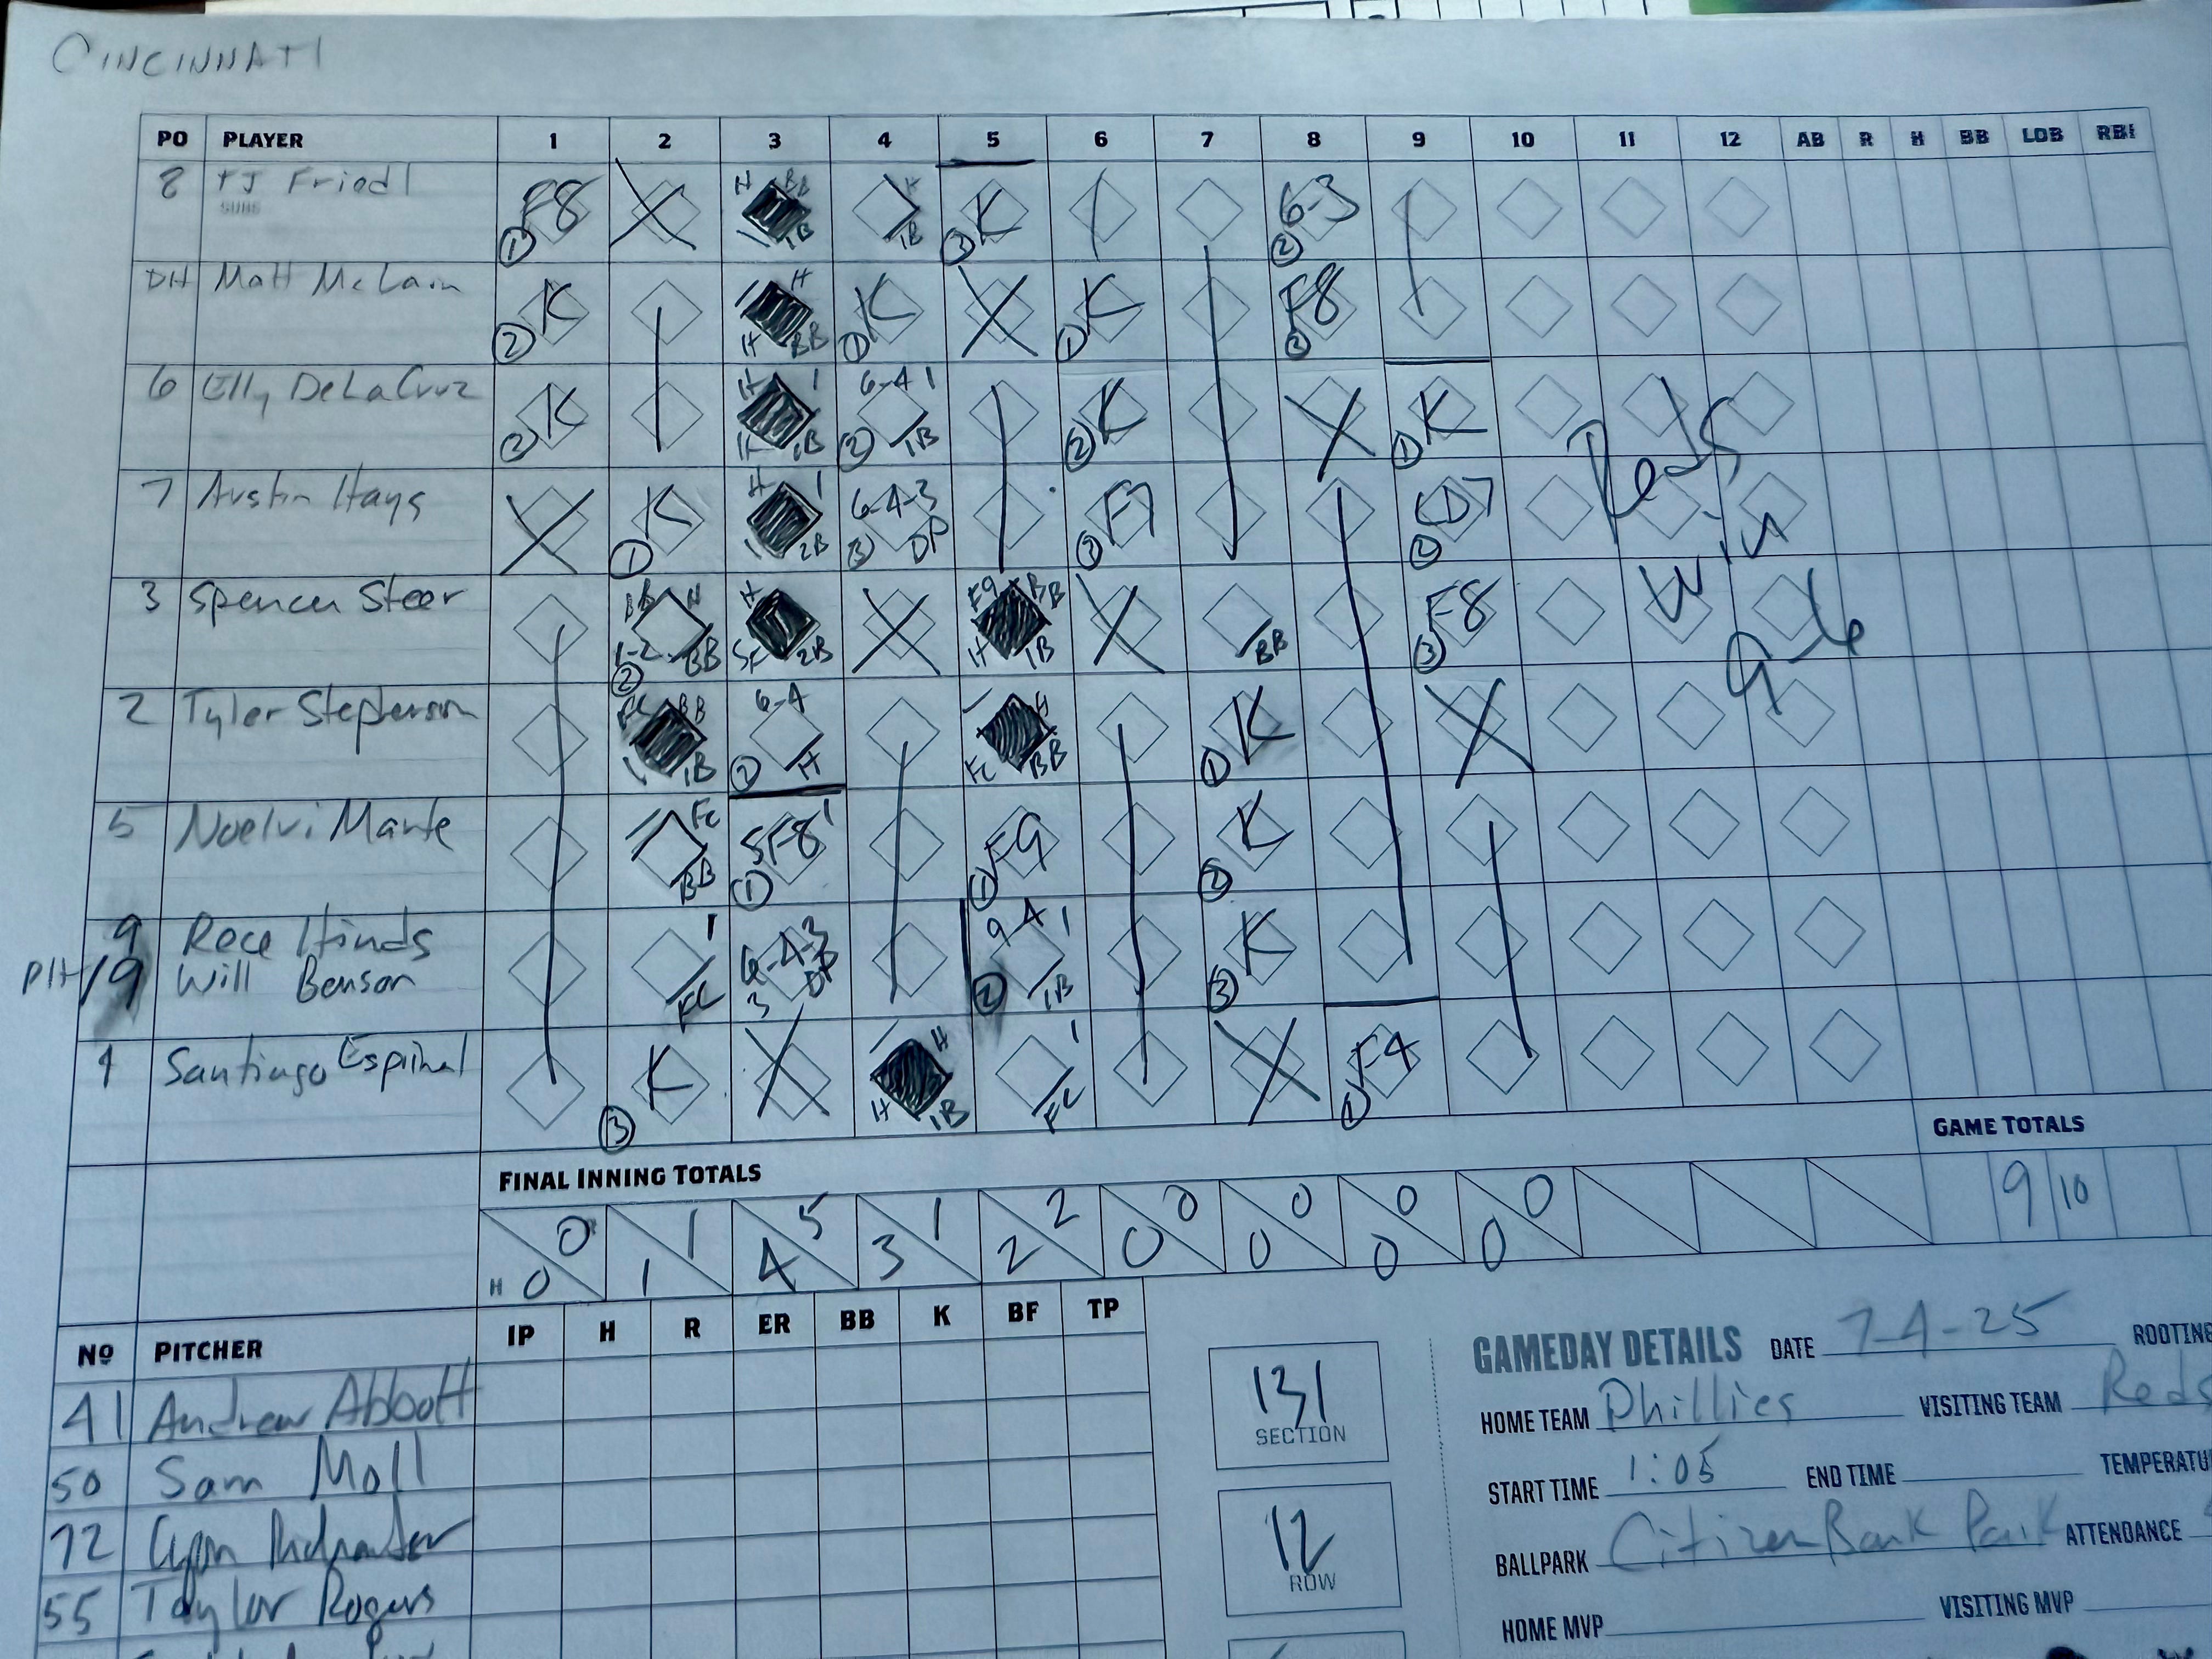 CINCINNATI
PO PLAYER 1 2 3 4 5 6 7 8 9 10 11 12 AB R H BB LOB RBI
8 TJ Friedl F8 H BB 1B H 1B K 6-3
SUBS
1 3 2
DH Matt McLain K H H BB K K F8
2 1 1 3
6 Elly DeLaCruz K H 1 H 1B 6-4 1 1B K K
2 2 1
7 Austin Hays K H 1 1 2B 6-4-3 DP F7 (D7
1 3 2
3 Spencer Steer BB H 1-2 BB H SF 2B F9 BB H 1B BB F8
2 3
2 Tyler Stephenson FC BB 1B 6-4 H H FC BB K
1
5 Noelvi Marte FC BB SF8 1 F9 K
1 1 2
9 Rece Hinds 1 FC 6-4-3 DP 3 9-4 1 1B K
PH/9 Will Benson
2 3
4 Santiago Espinal K H H 1B 1 FC F4
3 1
Reds
Win
9-6
GAME TOTALS
FINAL INNING TOTALS
0 1 5 1 2 0 0 0 0 9 10
H 0 1 4 3 2 0 0 0 0
Nº PITCHER IP H R ER BB K BF TP
41 Andrew Abbott
50 Sam Moll
72
55 Taylor Rogers
131
SECTION
12
ROW
GAMEDAY DETAILS DATE 7-4-25 ROOTING
HOME TEAM Phillies VISITING TEAM Reds
START TIME 1:05 END TIME TEMPERATU
BALLPARK Citizen Bank Park ATTENDANCE
HOME MVP VISITING MVP